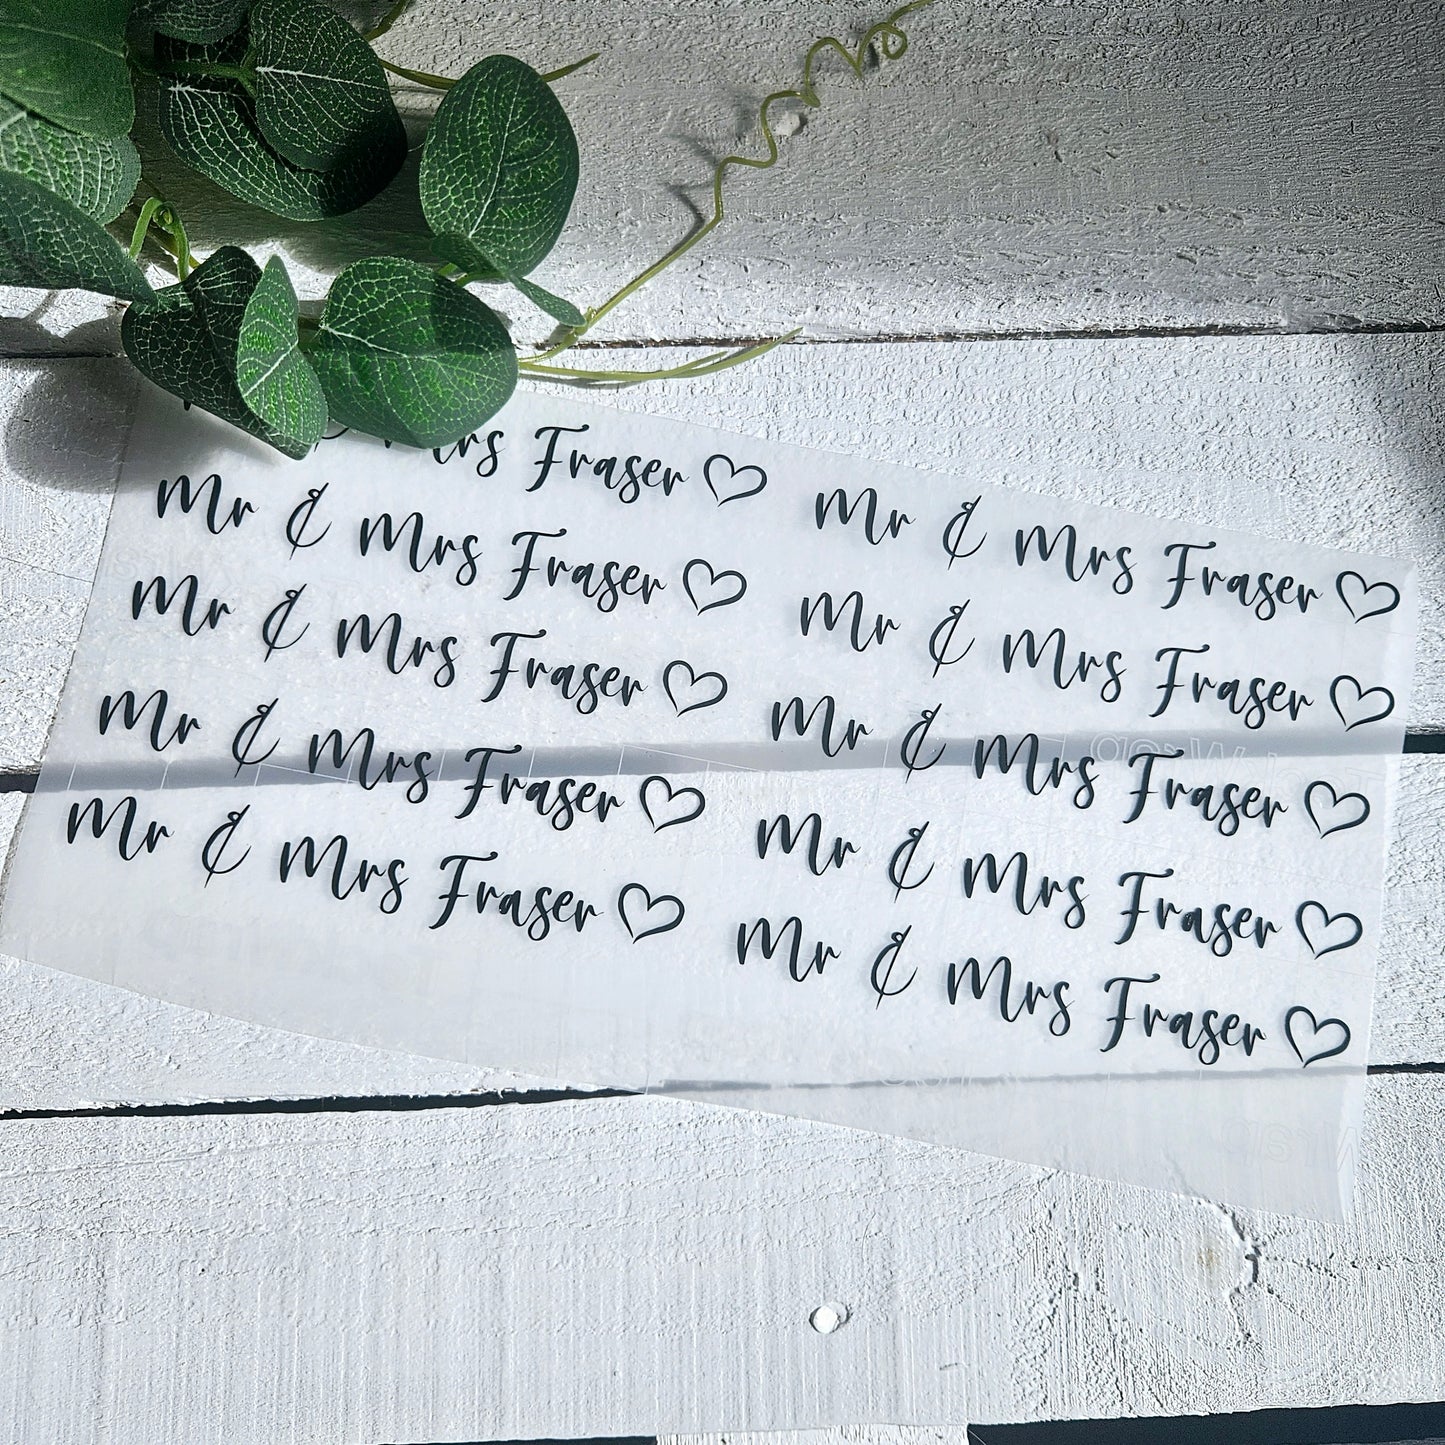 Mrs Fraser
Mr & Mrs Fraser
Mr & Mrs Fraser
Mr & Mrs Fraser
Mr & Mrs Fraser
Mr & Mrs Fraser
Mr & Mrs Fraser
Mr & Mrs Fraser
Mr & Mrs Fraser
Mr & Mrs Fraser